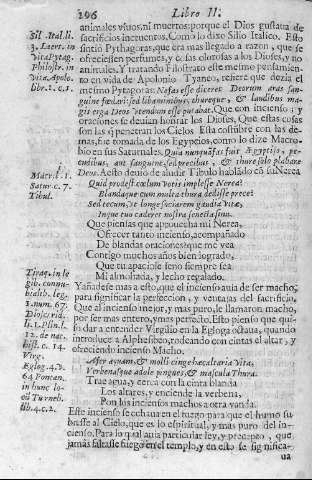 206 Libro II.
animales vivos, ni muertos: porque el Dios gustava de
sacrificios incruentos. Como lo dixo Silio Italico. Esto
sintiò Pythagoras, que era mas llegado a razon, que se
ofreciessen perfumes, y cosas olorosas a los Dioses, y no
animales. Y tratando Filostrato este mesmo pensamien-
to en vida de Apolonio Tyaneo, refiere que dezia el
mesmo Pytagoras: Nefas esse diceret Deorum aras san-
guine fœdari: sed libaminibus, thureque, & laudibus ma-
gis erga Deos utendum esse putabat. Que con incienso; y
oraciones se devian honrar los Dioses, Que estas cosas
son las q̃ penetran los Cielos. Esta costũbre con las de-
mas, fue tomada de los Egypcios, como lo dize Macro-
bio en sus Saturnales. Quia nunquã fas fuit Ægyptijs, pe-
cudibus, aut sanguine, sed precibus, & thure solo placare
Deos. A esto devio de aludir Tibulo hablãdo cõ su Nerea
Quid prodest cœlum votis implesse Neræa?
Blandaque cum multa thura dedisse prece?
Sed tecum, ut longe sociarem gaudia vitæ,
Inque tuo caderet nostra senecta sinu.
Que piensas que aprovecha mi Nerea,
Ofrecer tanto incienso, acompañado
De blandas oraciones que me vea
Contigo muchos años bien logrado,
Que tu apacible seno siempre sea
Mi almohada, y lecho regalado.
Yañadese mas a esto, que el incienso avia de ser macho,
para significar la perfeccion, y ventajas del sacrificio,
Que el incienso mejor, y mas puro, le llamaron macho,
por ser mas entero, y mas perfecto. Esto pienso que qui-
so dar a entender Virgilio en la Egloga octava, quando
introduce a Alphesibeo, rodeando con cintas el altar, y
ofreciendo incienso Macho.
Affer aquam, & molli cinge hæc altaria Vita:
Verbenasque adole pingues, & mascula Thura.
Trae agua, y cerca con la cinta blanda
Los altares, y enciende la verbena,
Pon los inciensos machos a otra vanda.
Este incienso se echava en el fuego para que el humo su-
biesse al Cielo, que es lo espiritual, y mas puro del in-
cienso. Para lo qual avia particular ley, y precepto, que
jamàs faltasse fuego en el templo, y en esto se significa-
va
Sil. Ital. li.
3. Laert. in
Vita Pytag.
Philostr. in
vita Apolo.
libr. 1. c. 1.
Macr. l. 1.
Satur c. 7.
Tibul.
Tiraq. in le
gib. connu-
bialib. leg.
1. num. 67.
Diosc. rid.
li. 1. Plin. l.
12. de nat.
hist. c. 14.
Virg.
Eglog. 4. D.
64 Pontan.
in hunc lo-
cũ Turneb.
lib. 4. c. 2.